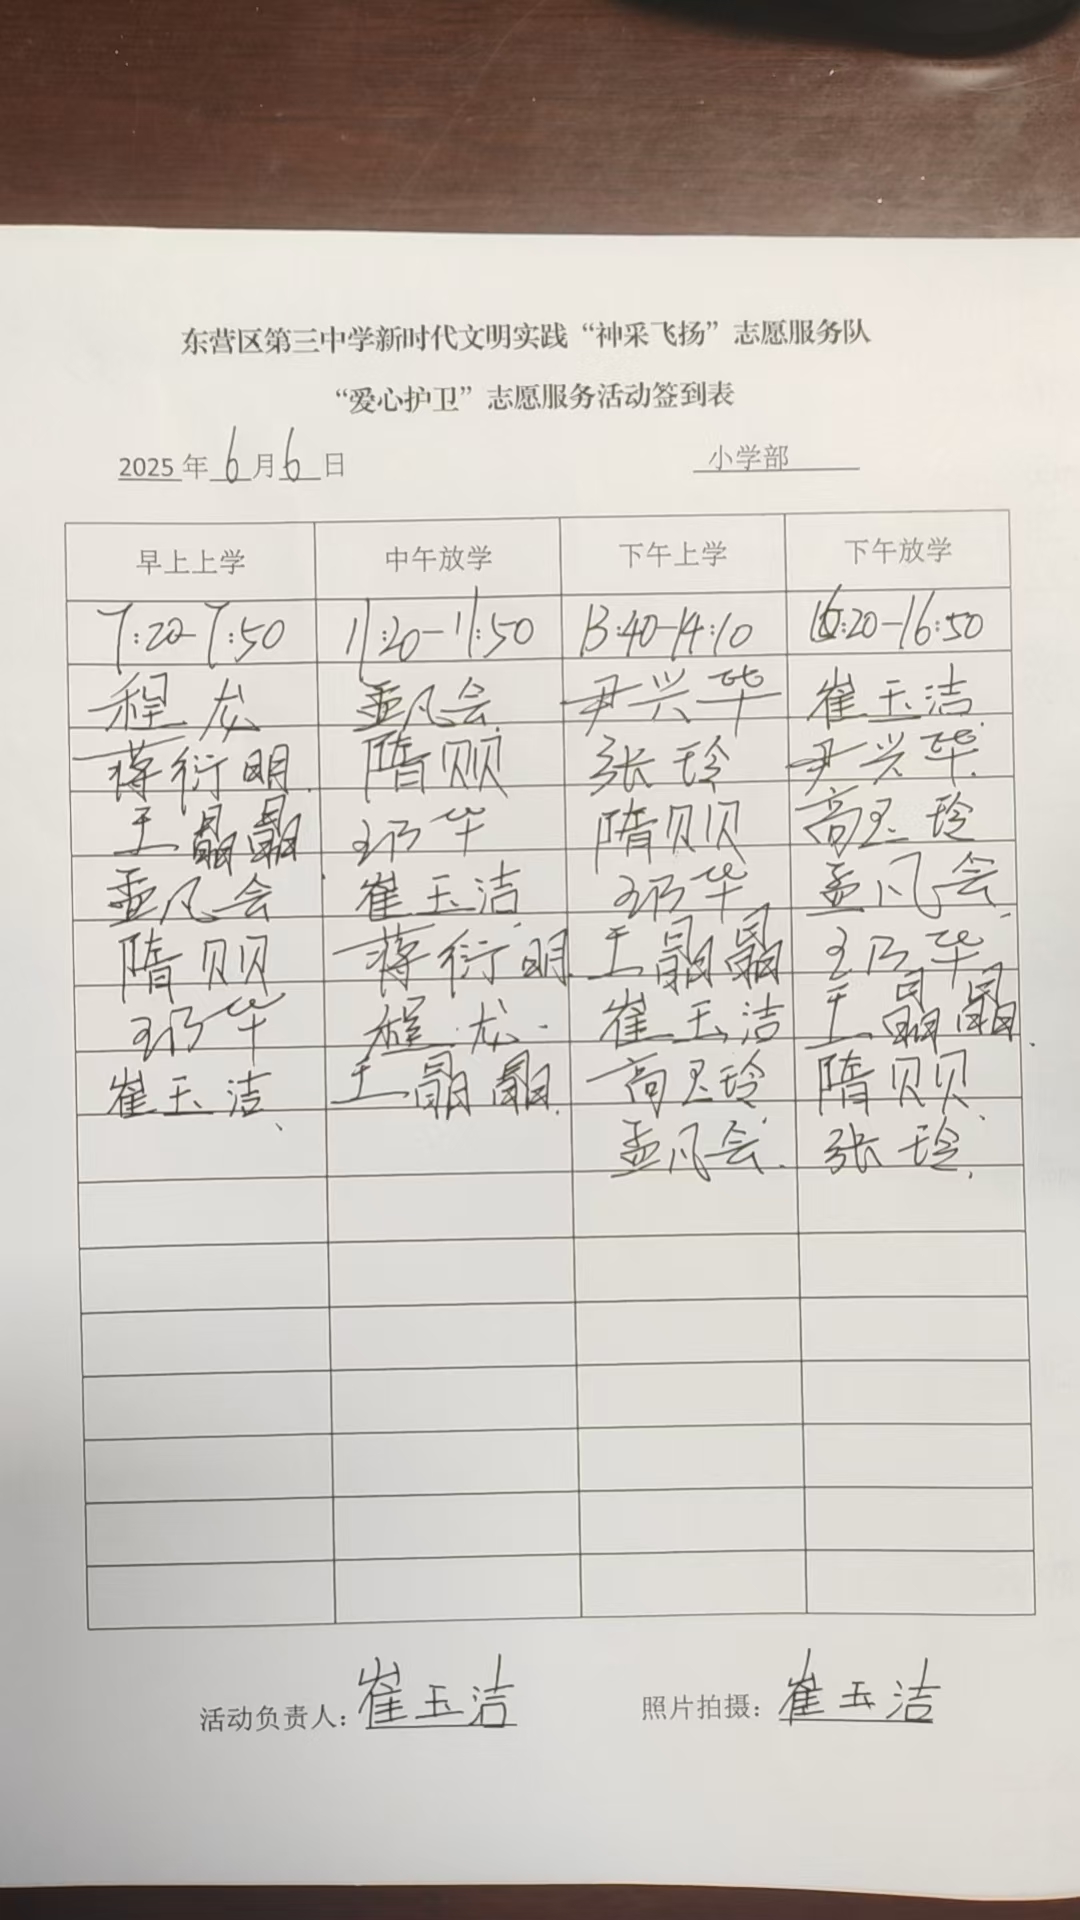 东营区第三中学新时代文明实践“神采飞扬”志愿服务队
“爱心护卫”志愿服务活动签到表
2025年6月6日 小学部
早上上学 中午放学 下午上学 下午放学
7:20-7:50 11:20-11:50 13:40-14:10 16:20-16:50
程龙 孟凡会 尹兴华 崔玉洁
蒋衍明 隋贝贝 张玲 尹兴华
王晶晶 王乃华 隋贝贝 高玉玲
孟凡会 崔玉洁 王乃华 孟凡会
隋贝贝 蒋衍明 王晶晶 王乃华
王乃华 程龙 崔玉洁 王晶晶
崔玉洁 王晶晶 高玉玲 隋贝贝
孟凡会 张玲
活动负责人：崔玉洁 照片拍摄：崔玉洁